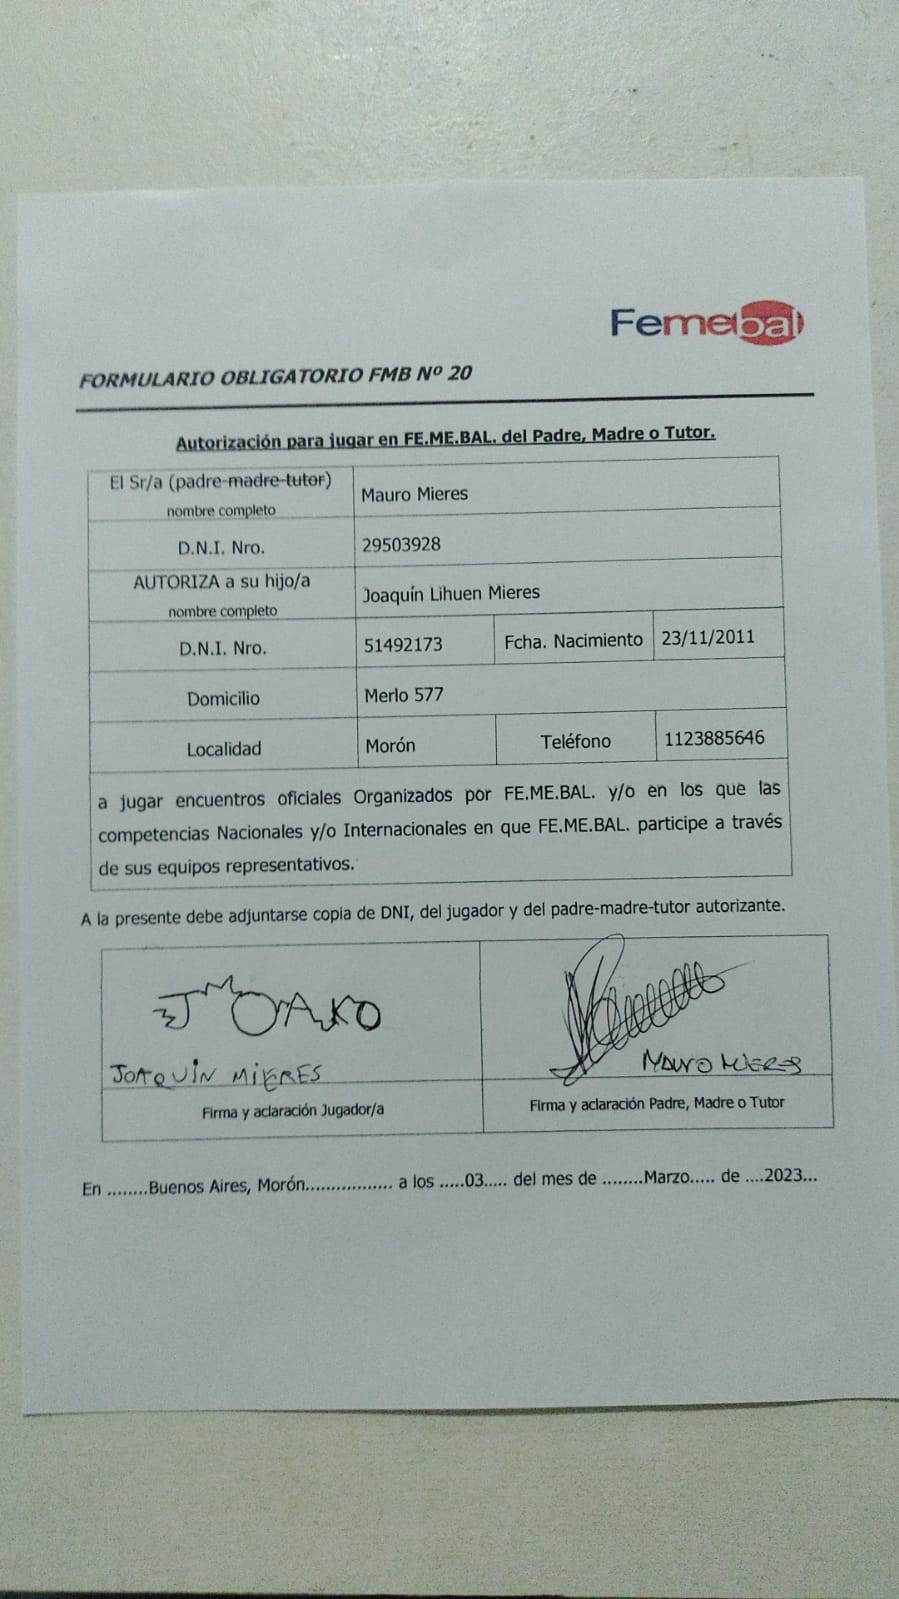 Femebal
FORMULARIO OBLIGATORIO FMB Nº 20
Autorización para jugar en FE.ME.BAL. del Padre, Madre o Tutor.
El Sr/a (padre-madre-tutor)
nombre completo
Mauro Mieres
D.N.I. Nro.
29503928
AUTORIZA a su hijo/a
nombre completo
Joaquín Lihuen Mieres
D.N.I. Nro.
51492173
Fcha. Nacimiento
23/11/2011
Domicilio
Merlo 577
Localidad
Morón
Teléfono
1123885646
a jugar encuentros oficiales Organizados por FE.ME.BAL. y/o en los que las
competencias Nacionales y/o Internacionales en que FE.ME.BAL. participe a través
de sus equipos representativos.
A la presente debe adjuntarse copia de DNI, del jugador y del padre-madre-tutor autorizante.
JOAQUÍN MIERES
MAURO MIERES
Firma y aclaración Jugador/a
Firma y aclaración Padre, Madre o Tutor
En ........Buenos Aires, Morón................. a los .....03..... del mes de ........Marzo..... de ....2023...